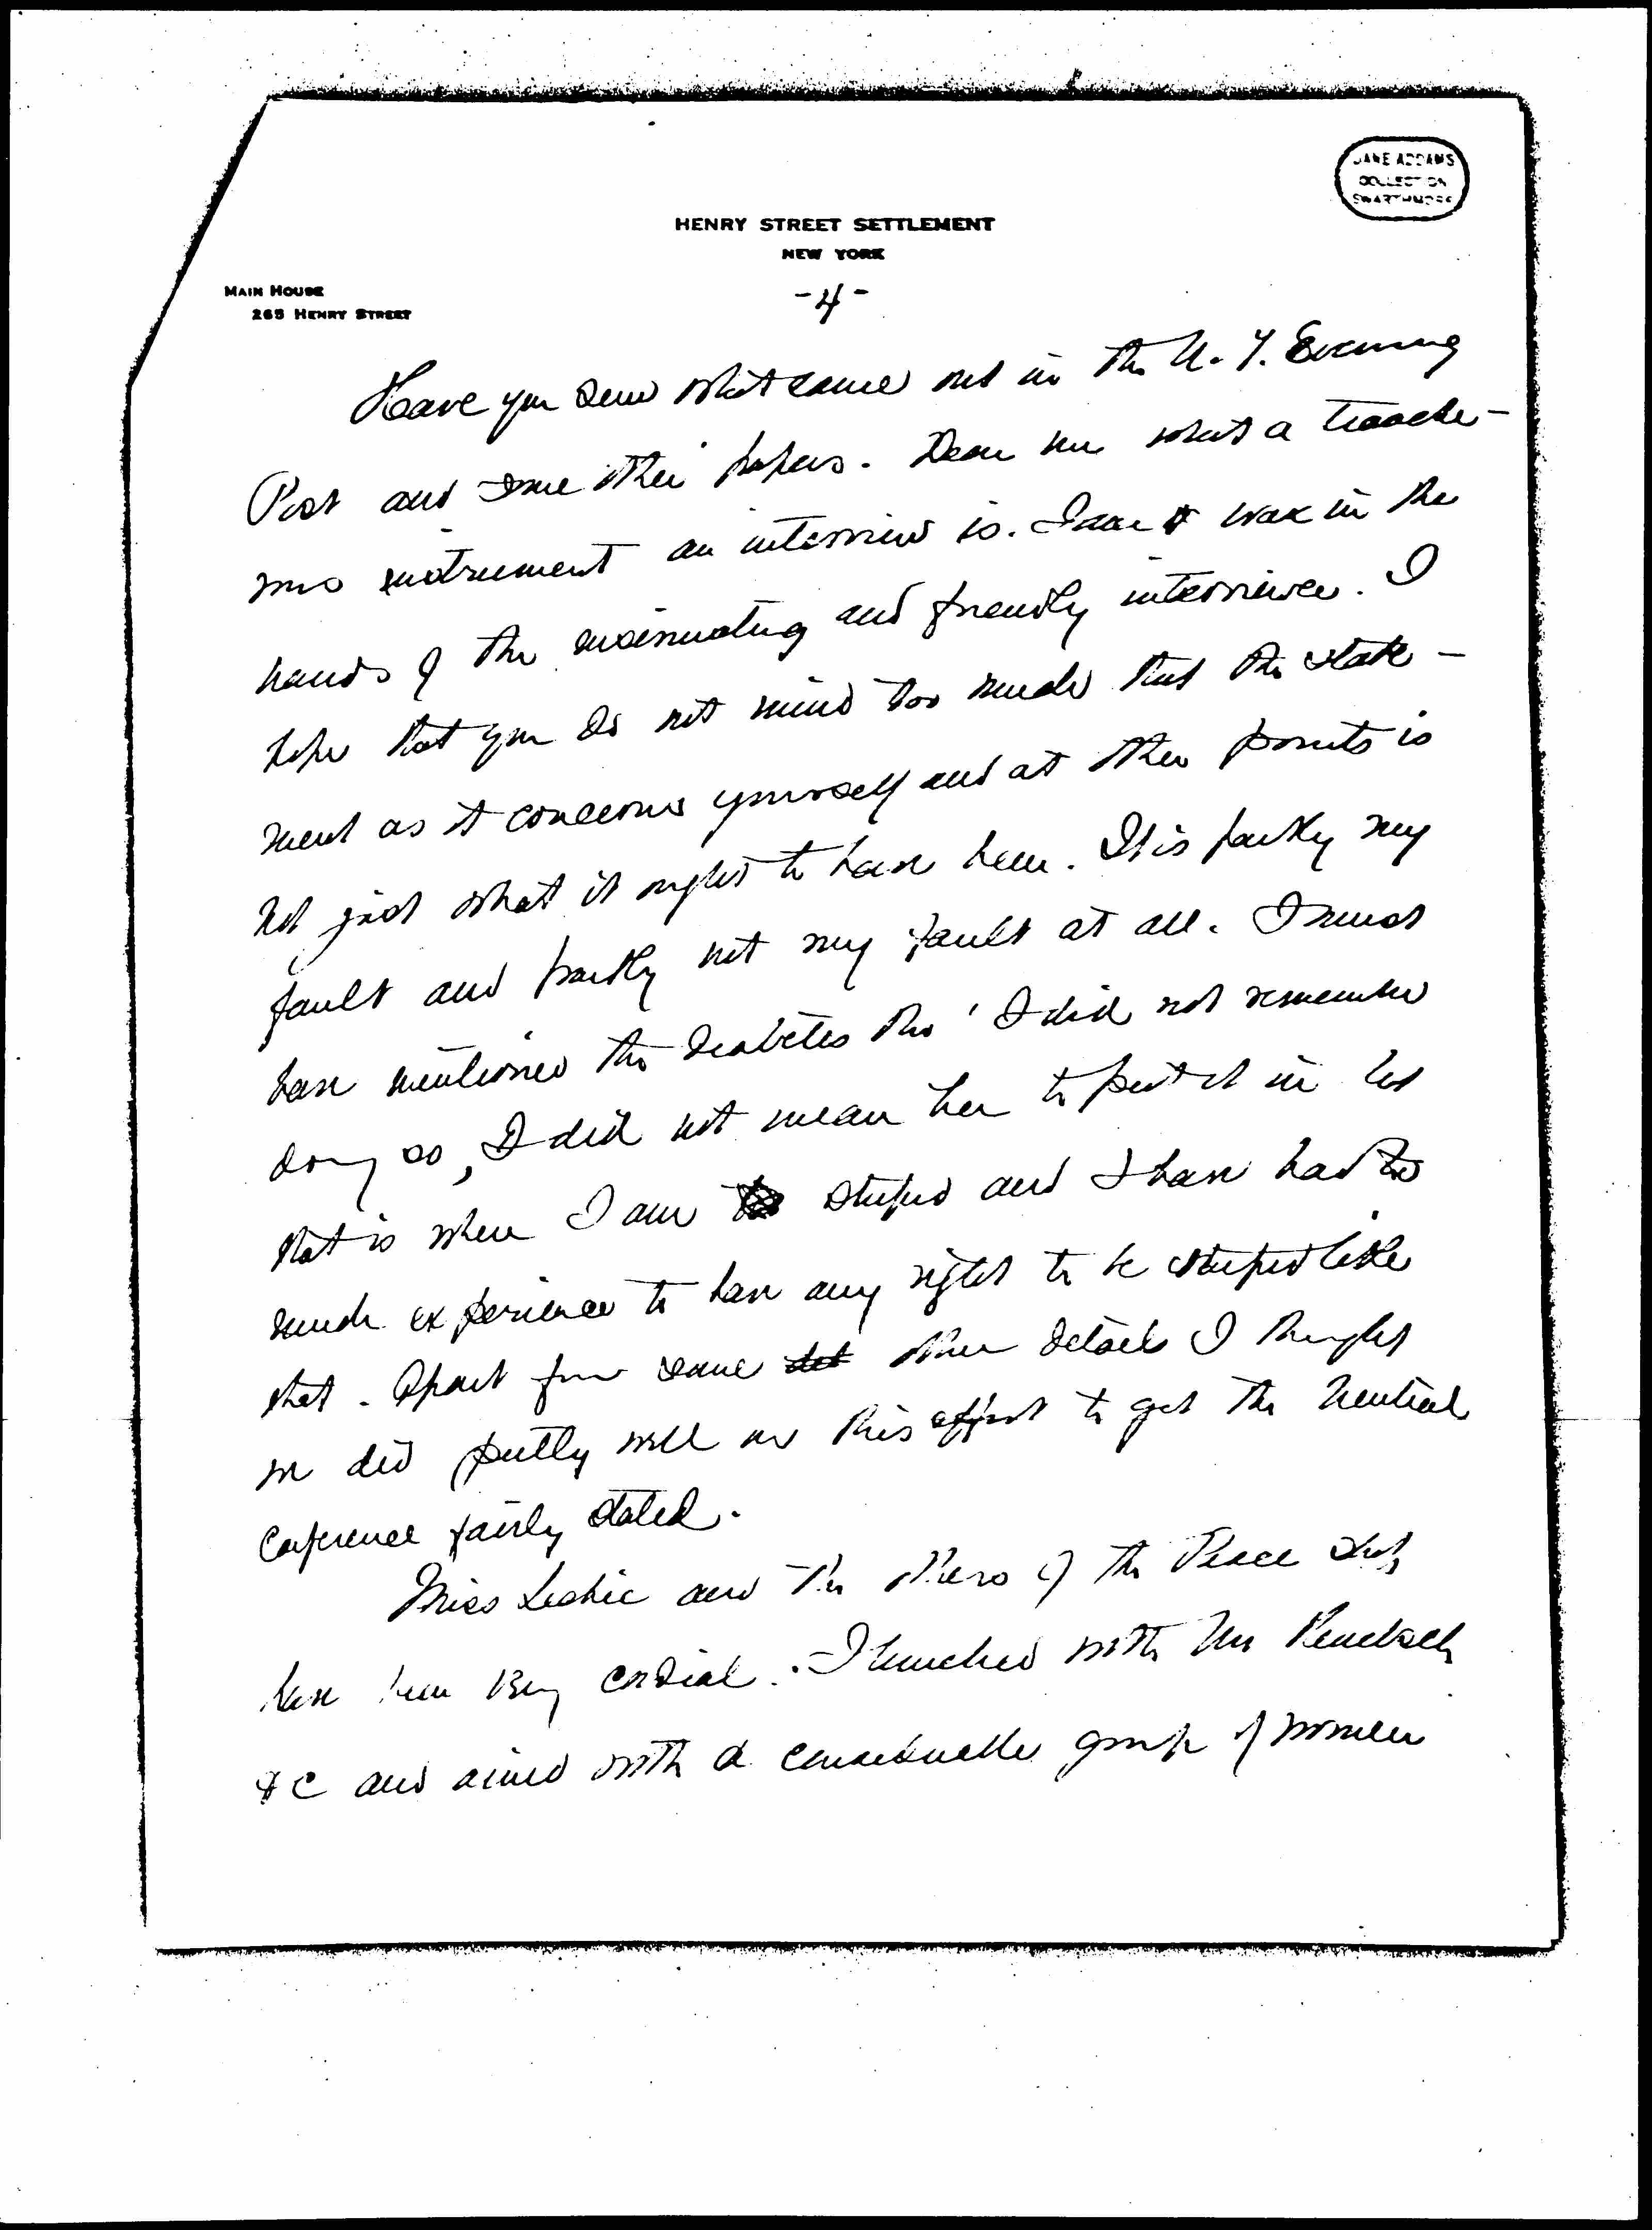 JANE ADDAMS
COLLECTION
SWARTHMORE
HENRY STREET SETTLEMENT
NEW YORK
MAIN HOUSE
265 HENRY STREET
-4-
Have you seen what came out in the N. Y. Evening
Post and some other papers. Dear me what a treache-
rous instrument an interview is. I am wax in the
hands of the insinuating and friendly interviewer. I
hope that you do not mind too much that the state-
ment as it concerns yourself and at other points is
not just what it ought to have been. It is partly my
fault and partly not my fault at all. I must
have mentioned the diabetes tho' I did not remember
doing so, I did not mean her to put it in but
that is where I am stupid and I have had too
much experience to have any right to be stupid like
that. Apart from some det other details I thought
we did pretty well in this effort to get the Neutral
Conference fairly stated.
Miss Leckie and the others of the Peace
have been very cordial. I lunched with Mrs
&c and dined with a considerable group of women